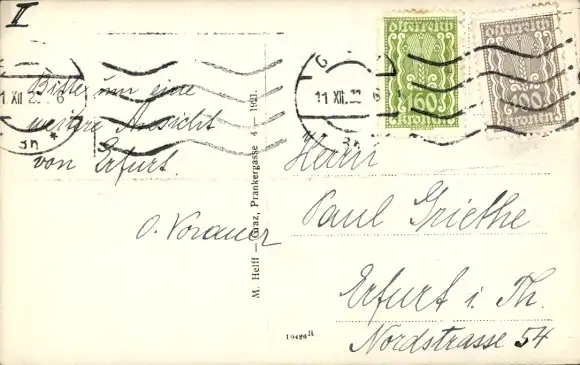 II
G
11 XII. 22
11 XII 2
6
3h
3h
ÖSTERREICH
160
kronen
ÖSTERREICH
kronen
Bitte um eine
weitere Ansicht
von Erfurt.
O. Vorauer
M. Helff — Graz, Prankergasse 4 — 1921.
10426a
Herrn
Paul Griethe
Erfurt i. Th.
Nordstrasse 54